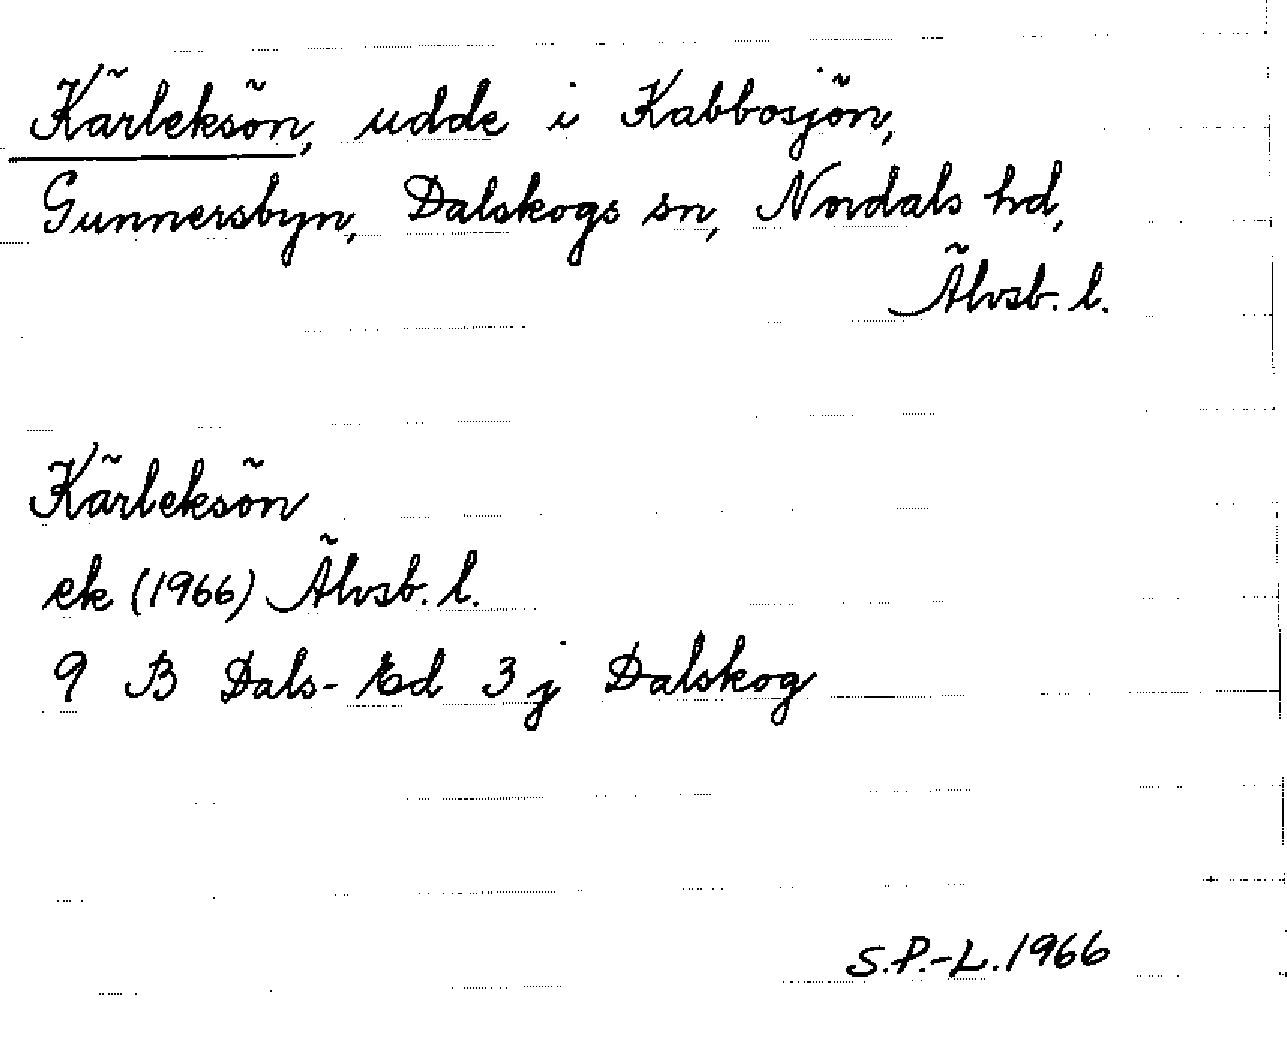 Kärleksön, udde i Kabbosjön,
Gunnersbyn, Dalskogs sn, Nordals hd,
Älvsb. l.
Kärleksön
ek (1966) Älvsb. l.
9 B Dals-Ed 3 j Dalskog
S.P.-L. 1966